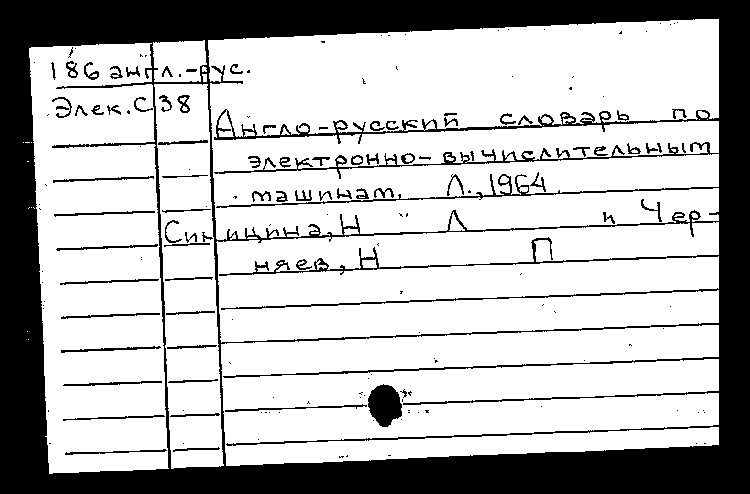 186 англ.-рус.
Элек. С38
Англо-русский словарь по
электронно-вычислительным
машинам. Л., 1964
Синицина, Н Л и Чер-
няев, Н П